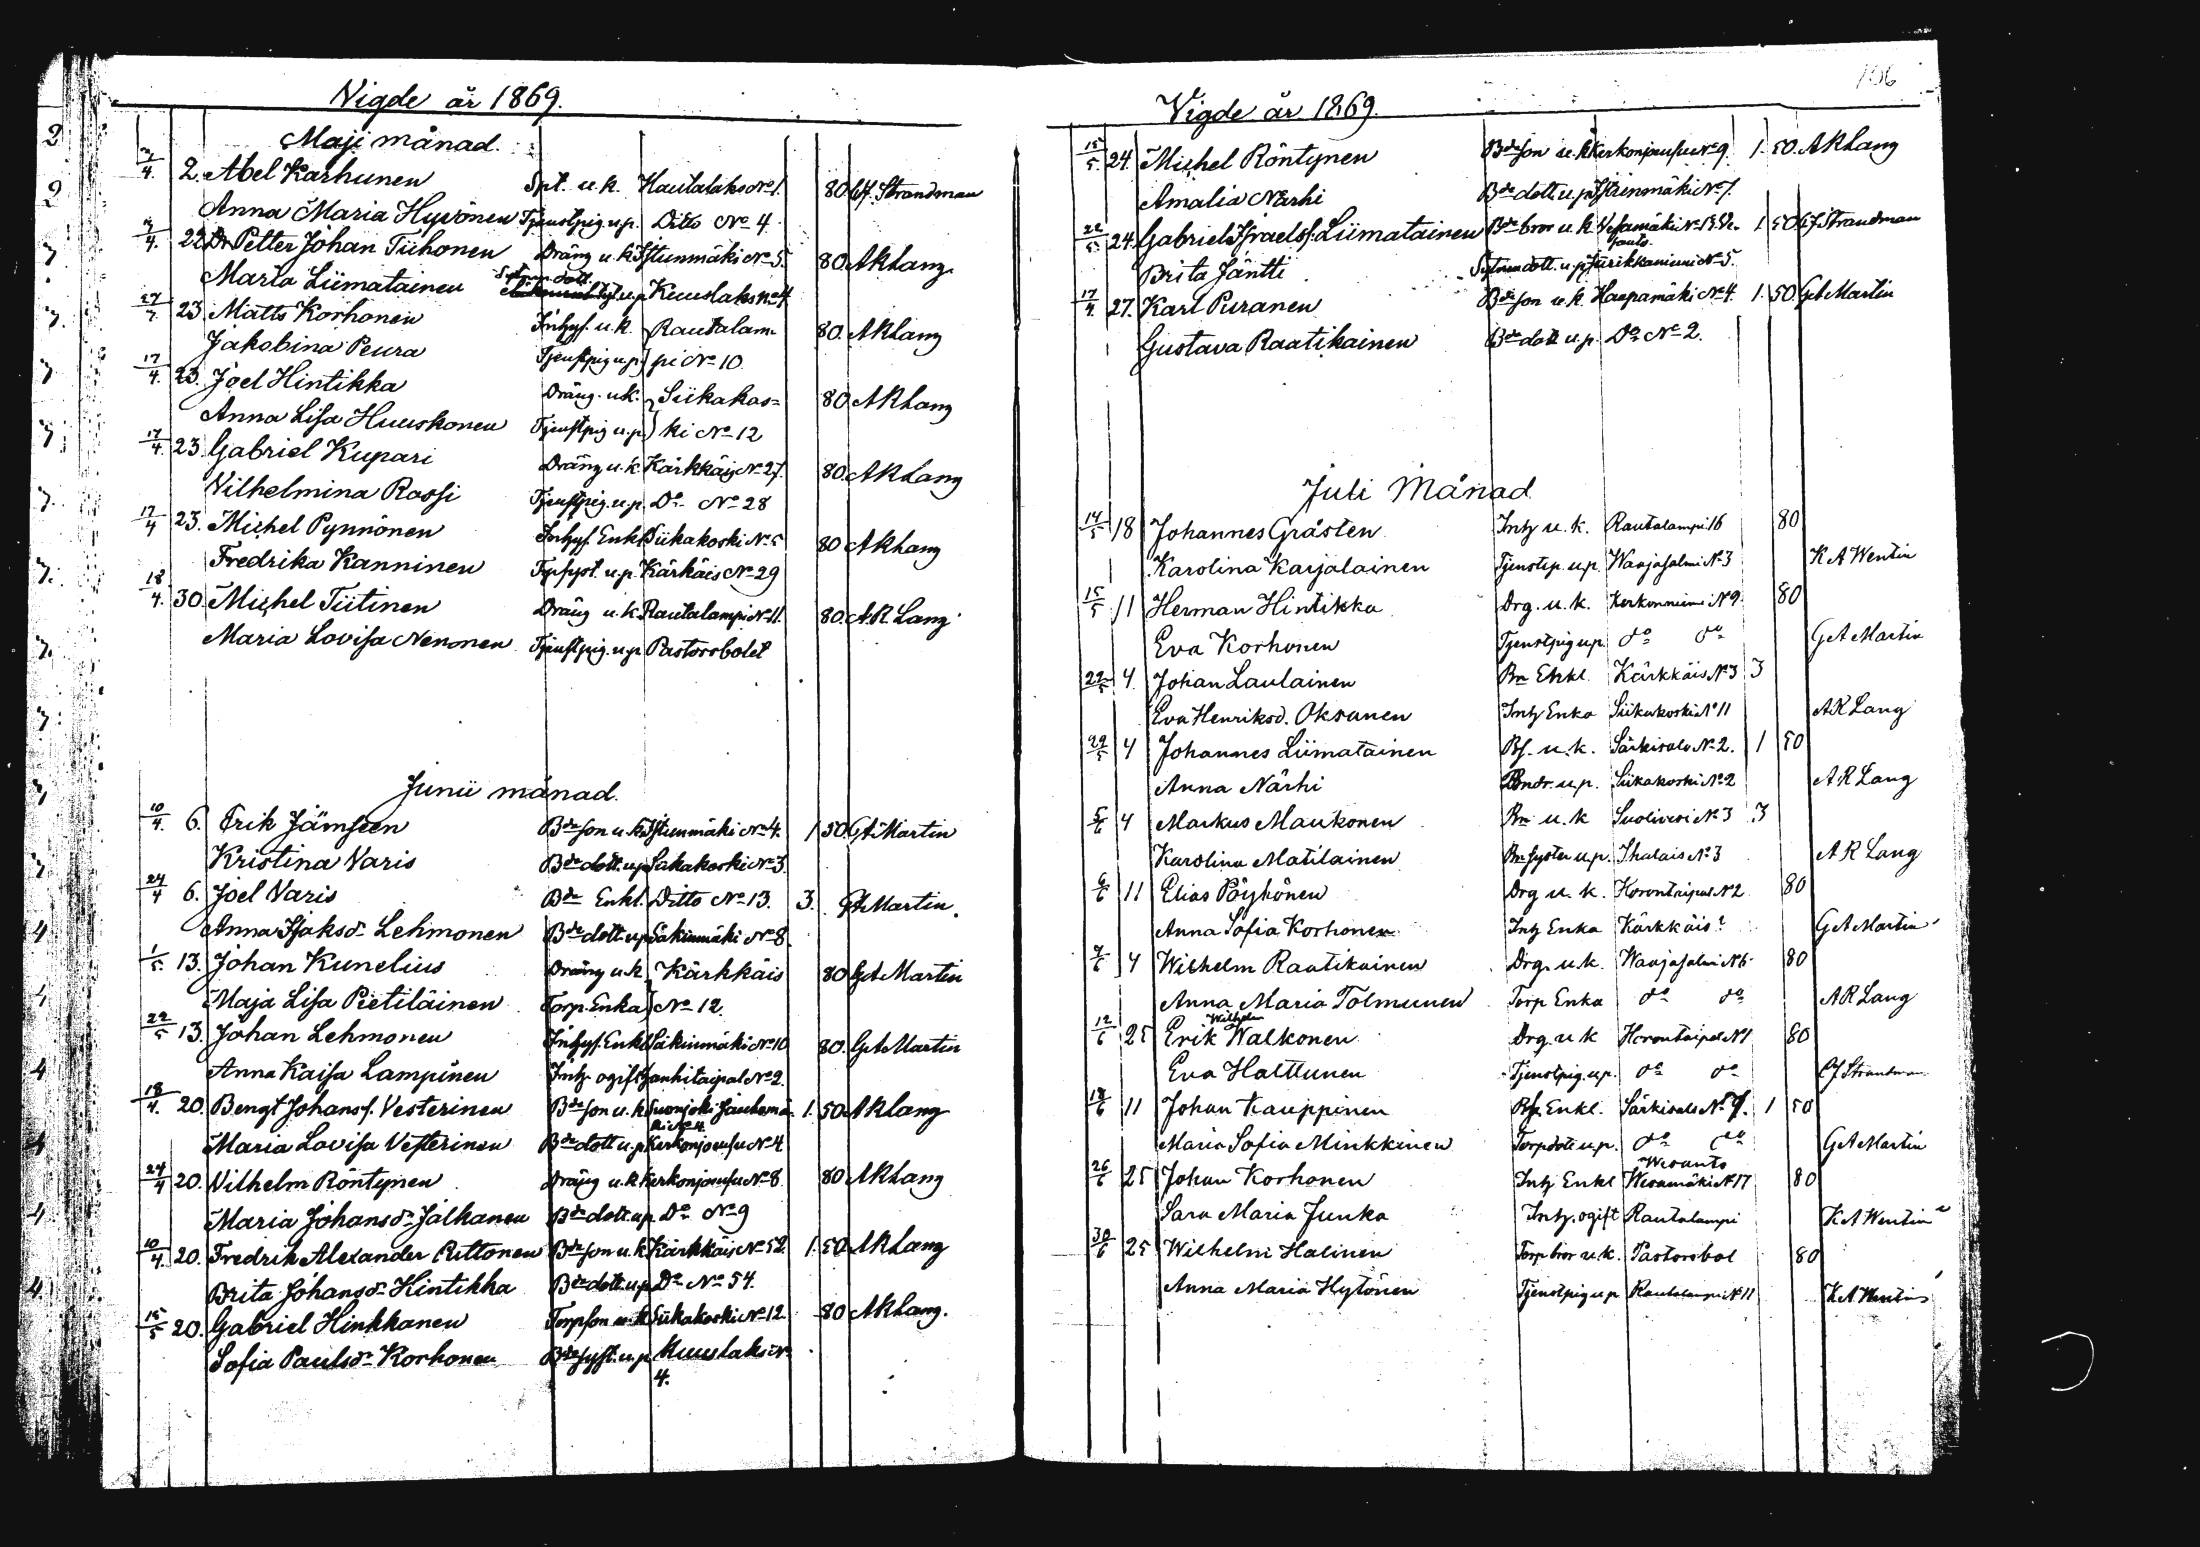 Vigde år 1869.
Maji månad.
4. 2. Abel Karhunen Spt. u.k. Hautalaks No 1. 80 Cf. Strandman
Anna Maria Hyvönen Tjenstpig u.p. Ditto No 4.
4. 22 Dr Petter Johan Tiihonen Dräng u.k. Istunmäki No 5. 80 AR Lang
Marta Liimatainen Sytnm dott. u.p. Kuuslaks No 4
27 23 Matts Korhonen Inhys. u.k. Rautalam- 80. AR Lang
Jakobina Peura Tjenstpig u.p. pi No 10.
17/4. 23. Joel Hintikka Dräng. u.k. Siikakos= 80 AR Lang
Anna Lisa Huuskonen Tjenstpig u.p. ki No 12
17/4. 23. Gabriel Kupari Dräng u.k. Kärkkäis No 27. 80. AR Lang
Vilhelmina Rossi Tjenstpig. u.p. Do No 28
17/4 23. Michel Pynnönen Inhys. Enkl. Siikakoski No 5 80 AR Lang
Fredrika Kanninen u.p. Kärkäis No 29
18/4. 30. Michel Tiitinen Dräng u.k. Rautalampi No 11. 80. AR Lang
Maria Lovisa Nenonen Tjenstpig. u.p. Pastorsbolet
Junii månad.
10/4. 6. Erik Jämseen Bde son u.k. Istunmäki No 4. 1 50. GA Martin
Kristina Varis Bde dott. u.p. No 3.
24/4 6. Joel Varis Bde Enkl. Ditto No 13. 3. GA Martin.
Anna Isaksdr Lehmonen Bde dott u.p. Säkinmäki No 8.
1/5. 13. Johan Kunelius Dräng u.k. Kärkkäis 80 GA Martin
Maja Lisa Pietiläinen Torp. Enka No 12.
22/5 13. Johan Lehmonen Inhys. Enkl. Säkinmäki No 10 80. GA Martin
Anna Kaisa Lampinen Inhy ogift No 2.
18/4. 20. Bengt Johans s. Vesterinen Bde son u.k. Suonjoki 1. 50 AR Lang
ki No 4
Maria Lovisa Vesterinen Bde dott u.p. Kerkonjoensu No 4
24/4 20. Vilhelm Röntynen Dräng u.k. Kerkonjoensu No 8 80 AR Lang
Maria Johansdr Jalkanen Bde dott. u.p. Do No 9
10/4. 20. Fredrik Alexander Rittonen Bde son u.k. Kärkkäis No 52. 1. 50. AR Lang
Brita Johansdr Hintikka Bde dott. u.p. Do No 54.
15/5 20. Gabriel Hinkkanen Torpson u.k. Siikakoski No 12. 80 AR Lang.
Sofia Paulsdr Korhonen Bde syst. u.p. Kuuslaks No
4.
106
Vigde år 1869.
15/5. 24. Michel Röntynen Bde son u.k. Kerkonjoensu No 9. 1. 50. AR Lang
Amalia Närhi Bde dott. u.p. No 1.
22/5 24. Gabriel Israels s. Liimatainen Bde bror u.k. Vesamäki No 1. 50 Cf Strandman
Brita Jäntti Sytnm dott. u.p. No 5.
17/4 27. Karl Puranen Bde son u.k. Haapamäki No 4. 1. 50 GA Martin
Gustava Raatikainen Bde dott u.p. Do No 2.
Juli Månad
14/5 18 Johannes Gråsten Inhy u.k. Rautalampi 16 80
Karolina Karjalainen Tjenstp. u.p. Waajasalmi No 3 K A Wentin
15/5 11 Herman Hintikka Drg. u.k. Kerkonniemi No 9. 80
Eva Korhonen Tjenstpig u.p. do do GA Martin
22/5 4. Johan Laulainen Bn Enkl. Kärkkäis No 3 3
Eva Henriksd. Oksanen Inhy Enka Siikakoski No 11 AR Lang
29/5 4 Johannes Liimatainen Bs. u.k. Särkisalo No 2. 1 50
Anna Närhi Bondr. u.p. Siikakoski No 2 AR Lang
5/6 4 Markus Maukonen Bn u.k Suolivesi No 3 3
Karolina Matilainen Bn syster u.p. Ihalais No 3 AR Lang
6/6 11 Elias Pöyhönen Drg u.k. Korontaipal No 2 80
Anna Sofia Korhonen Inhy Enka Kärkkäis GA Martin
7/6 4 Wilhelm Raatikainen Drg. u.k. Waajasalmi No 6 80
Anna Maria Tolmunen Torp Enka do do AR Lang
Wilhelm
12/6 25 Erik Walkonen Drg. u.k Korontaipal No 1 80
Eva Halttunen Tjenstpig. u.p. do do Cf Strandman
18/6 11 Johan Kauppinen Enkl. Särkisalo No 9. 1 50
Maria Sofia Minkkinen Torpdott u.p. do do GA Martin
Wesanto
26/6 25 Johan Korhonen Inhy Enkl Wesamäki No 17 80
Sara Maria Junka Inhy. ogift Rautalampi K A Wentin
30/6 25 Wilhelm Halinen Torp bror u.k. Pastorsbol 80
Anna Maria Hytönen Tjenstpig u.p Rautalampi No 11 K A Wentin